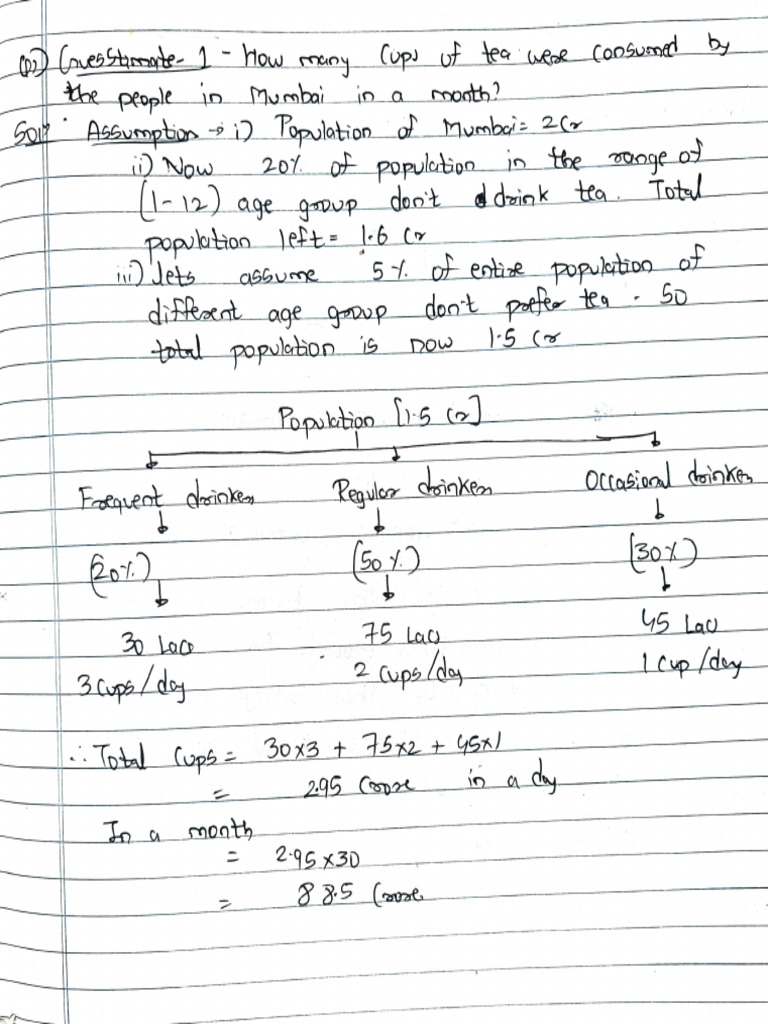 Q2) Guesstimate- 1 - How many Cups of tea were consumed by
the people in Mumbai in a month?
Solⁿ: Assumption → i) Population of Mumbai = 2 Cr
ii) Now 20% of population in the range of
(1-12) age group don't drink tea. Total
population left = 1.6 Cr
iii) lets assume 5% of entire population of
different age group don't prefer tea. So
total population is now 1.5 Cr
Population [1.5 Cr]
Frequent drinkers Regular drinkers Occasional drinkers
(20%) (50%) (30%)
30 Lacs 75 Lacs 45 Lacs
3 cups/day 2 cups/day 1 cup/day
∴ Total Cups = 30x3 + 75x2 + 45x1
= 2.95 Crore in a day
In a month
= 2.95x30
= 88.5 Crore